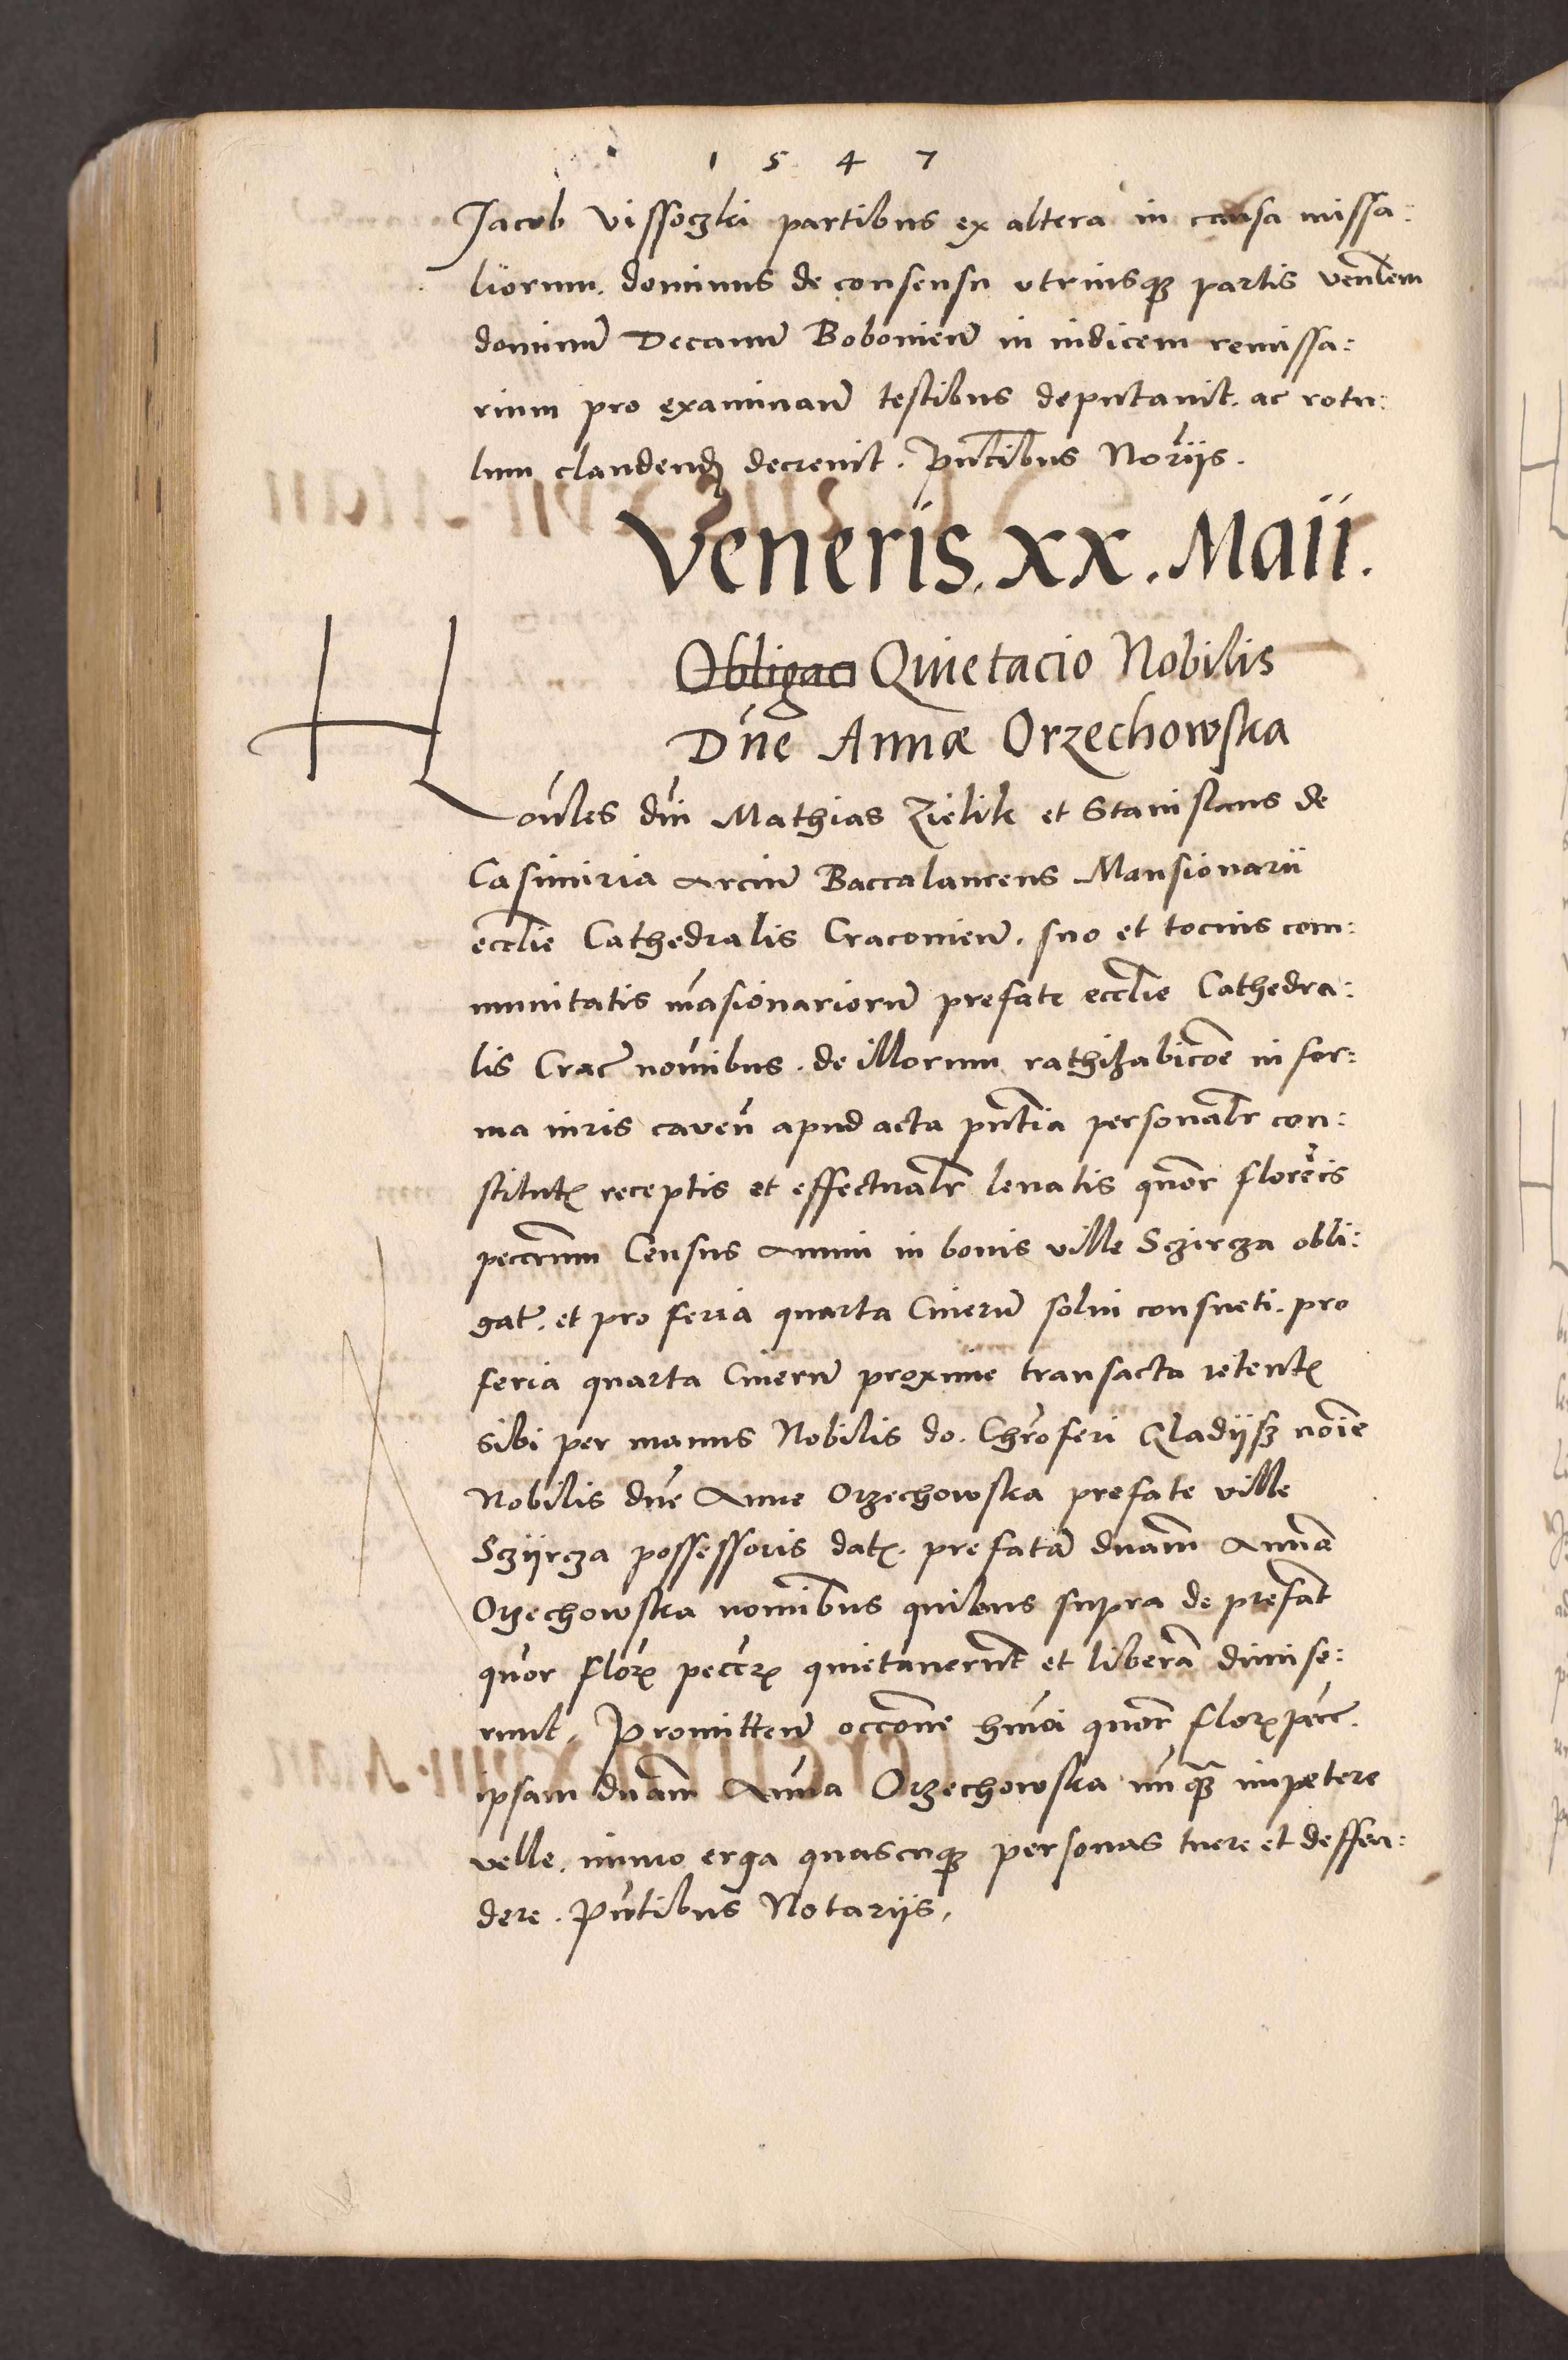 1 5 4 7
Jacob Vissoczki partibus ex altera in causa missa:
liorum. dominus de consensu vtriusq3 partis venlem
dominu Decanu Bobonien in iudicem remissa:
rium pro examinan testibus deputauit. ac rotu:
lum claudend decreuit. Pntibus Noriis.
Veneris. XX. Maii.
Obligaci Quietacio Nobilis
Dne Annæ Orzechowska
Honles dni Mathias Zielik et Stanislaus de
Casimiria Arciu Baccalaureus Mansionarii
ecclie Cathedralis Cracouien. suo et tocius com:
munitatis masionarioru prefate ecclie Cathedra:
lis Crac nomibus. de illorum rathihabicoe in for:
ma iuris caven apud acta pntia personalr con:
stitut receptis et effectualr leuatis quor florecis
peccrum Census Annui in bonis ville Sczircza obli:
gat. et pro feria quarta Cineru solui consueti. pro
feria quarta Cineru proxime transacta retent
sibi per manus Nobilis do. Chroferi Gladijsz noie
Nobilis dne Anne Orzechowska prefate ville
Sczyrcza possessoris dat. prefata dnam Anna
Orzechowska nomibus quibus supra de prefat
quor flor peccr quietauerunt et libera dimise:
runt. Promitten occone hmoi quor flor pecc.
ipsam dnam Anna Orzechowska nuq3 impetere
velle. immo erga quascuq3 personas tuere et deffen:
dere. Pntibus Notariis.